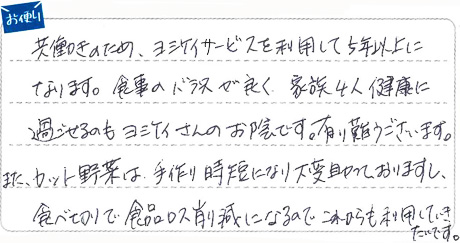 お便り
共働きのため、ヨシケイサービスを利用して5年以上に
なります。食事のバランスが良く、家族4人健康に
過ごせるのもヨシケイさんのお陰です。有り難うございます。
また、カット野菜は、手作り時短になり大変助かっておりますし、
食べ切りで食品ロス削減になるのでこれからも利用していき
たいです。